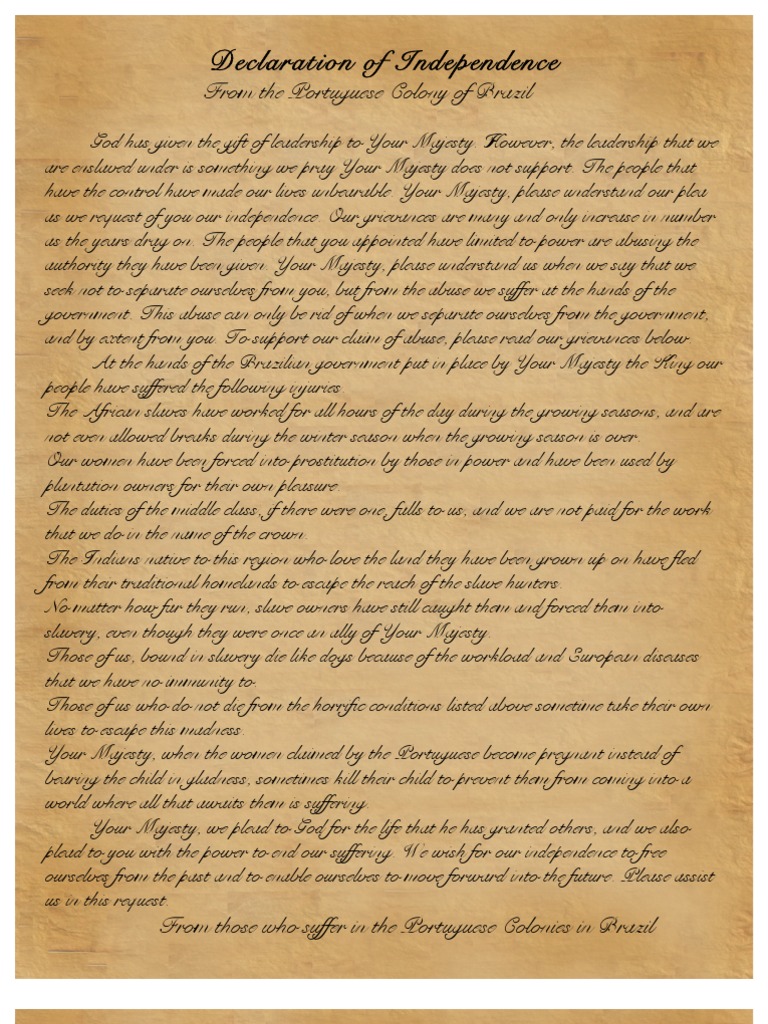 Declaration of Independence
From the Portuguese Colony of Brazil
God has given the gift of leadership to Your Majesty. However, the leadership that we
are enslaved under is something we pray Your Majesty does not support. The people that
have the control have made our lives unbearable. Your Majesty, please understand our plea
as we request of you our independence. Our grievances are many and only increase in number
as the years drag on. The people that you appointed have limited to power are abusing the
authority they have been given. Your Majesty, please understand us when we say that we
seek not to separate ourselves from you, but from the abuse we suffer at the hands of the
government. This abuse can only be rid of when we separate ourselves from the government,
and by extent from you. To support our claim of abuse, please read our grievances below.
At the hands of the Brazilian government put in place by Your Majesty the King our
people have suffered the following injuries.
The African slaves have worked for all hours of the day during the growing seasons, and are
not even allowed breaks during the winter season when the growing season is over.
Our women have been forced into prostitution by those in power and have been used by
plantation owners for their own pleasure.
The duties of the middle class, if there were one, falls to us, and we are not paid for the work
that we do in the name of the crown.
The Indians native to this region who love the land they have been grown up on have fled
from their traditional homelands to escape the reach of the slave hunters.
No matter how far they run, slave owners have still caught them and forced them into
slavery, even though they were once an ally of Your Majesty.
Those of us, bound in slavery die like dogs because of the workload and European diseases
that we have no immunity to.
Those of us who do not die from the horrific conditions listed above sometime take their own
lives to escape this madness.
Your Majesty, when the women claimed by the Portuguese become pregnant instead of
bearing the child in gladness, sometimes kill their child to prevent them from coming into a
world where all that awaits them is suffering.
Your Majesty, we plead to God for the life that he has granted others, and we also
plead to you with the power to end our suffering. We wish for our independence to free
ourselves from the past and to enable ourselves to move forward into the future. Please assist
us in this request.
From those who suffer in the Portuguese Colonies in Brazil